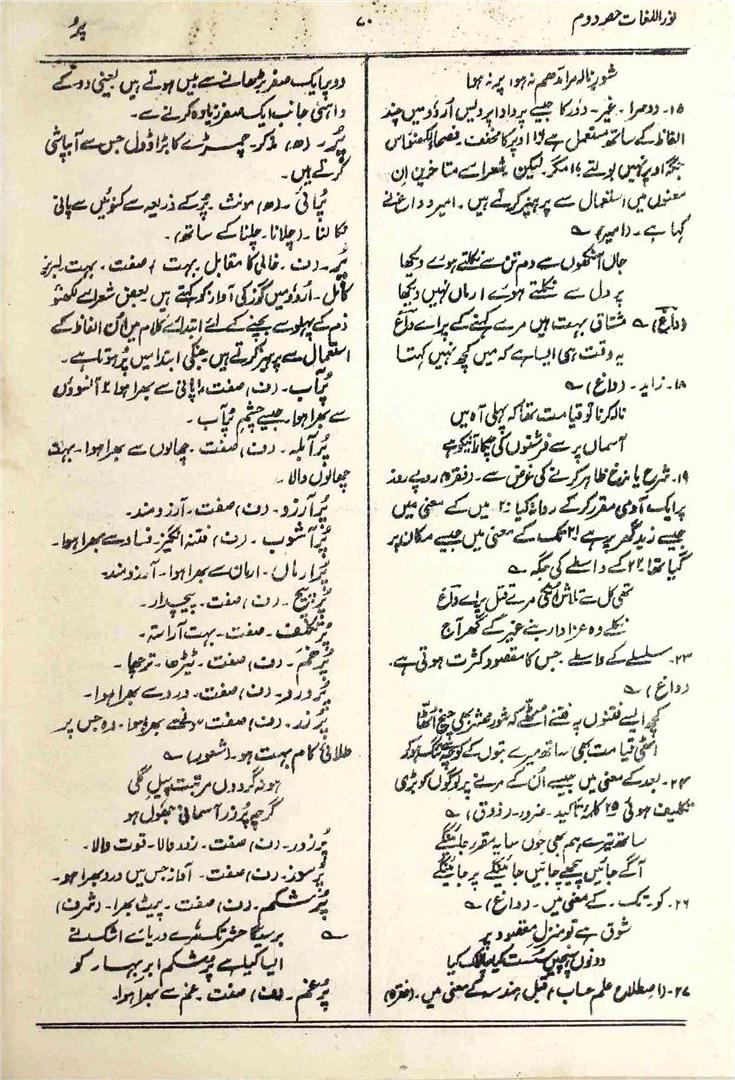 نور اللغات حصہ دوم
۷۰
پُر
شورِ نالہ مرا مدھم نہ ہوا پر نہ ہوا
۱۵۔ دوسرا۔ غیر۔ دور کا جیسے پردادا پردیس اُردو میں چند
الفاظ کے ساتھ مستعمل ہے ۱۶ اوپر کا مخفف۔ فصحائے لکھنؤ اس
جگہ اوپر نہیں بولتے ۱۷ مگر۔ لیکن شعراے متاخرین اِن
معنوں میں استعمال سے پرہیز کرتے ہیں۔ امیر و داغ نے
کہا ہے۔ (امیر) ؎
جاں آنکھوں سے دم تن سے نکلتے ہوے دیکھا
پر دل سے نکلتے ہوے ارماں نہیں دیکھا
(داغ) ؎ مشتاق بہت ہیں مرے کہنے کے پر اے داغ
یہ وقت ہی ایسا ہے کہ میں کچھ نہیں کہتا
۱۸۔ زاید۔ (داغ) ؎
نالہ کرنا تو قیامت تھا کہ پہلی آہ میں
آسماں پر سے فرشتوں کی
۱۹۔ شرح یا نرخ ظاہر کرنے کی غرض سے۔ (فقرہ) روپے روز
پر ایک آدمی مقرر کر کے روانہ کیا ۲۰ میں کے معنی میں
جیسے زید گھر پر ہے ۲۱ تک کے معنی میں جیسے مکان پر
گیا تھا ۲۲ کے واسطے کی جگہ ؎
تھی کل سے تلاش اُنکی مرے قتل پر اے داغ
نکلے وہ عزادار بنے غیر کے گھر آج
۲۳۔ سلسلے کے واسطے جس کا مقصود کثرت ہوتی ہے۔
(داغ) ؎
کچھ ایسے فتنوں پہ فتنے اُٹھے کہ شورِ محشر بھی چیخ اُٹھا
اُٹھی قیامت بھی ساتھ میرے بتوں کے کوچے سے تنگ ہو کر
۲۴۔ بعد کے معنی میں جیسے اُن کے مرنے پر لوگوں کو بڑی
تکلیف ہوئی ۲۵ کلمۂ تاکید۔ ضرور۔ (ذوق) ؎
ساتھ تیرے ہم بھی جوں سایہ مقرر جائینگے
آگے جائیں پیچھے جائیں جائینگے پر جائینگے
۲۶۔ کو۔ تک۔ کے معنی میں۔ (داغ) ؎
شوق ہے تو منزلِ مقصود پر
دونوں پہنچیں سُست کیا چالاک کیا
۲۷۔ (اصطلاح علم حساب) قبل ہندسہ کے معنی میں۔ (فقرہ)
دو پر ایک صفر بڑھانے سے بیس ہوتے ہیں یعنی دو کے
داہنی جانب ایک صفر زیادہ کرنے سے۔
پُر۔ (ھ) مذکر۔ چمڑے کا بڑا ڈول جس سے آبپاشی
کرتے ہیں۔
پُرائی۔ (ھ) مونث۔ پُر کے ذریعہ سے کنوئیں سے پانی
نکالنا۔ (چلانا۔ چلنا کے ساتھ)۔
پُر۔ (ف۔ خالی کا مقابل۔ بہت) صفت۔ بہت۔ لبریز
کامل۔ اُردو میں گوز کی آواز کو کہتے ہیں بعض شعراے لکھنؤ
ذم کے پہلو سے بچنے کے لئے ابتداے کلام میں اُن الفاظ کے
استعمال سے پرہیز کرتے ہیں۔ جنکی ابتدا میں پُر ہوتا ہے۔
پُر آب۔ (ف) صفت ۱ پانی سے بھرا ہوا ۲ آنسوؤں
سے بھرا ہوا۔ جیسے چشمِ پُر آب۔
پُر آبلہ۔ (ف) صفت۔ چھالوں سے بھرا ہوا۔ بہت
چھالوں والا۔
پُر آرزو۔ (ف) صفت۔ آرزومند۔
پُر آشوب۔ (ف) فتنہ انگیز۔ فساد سے بھرا ہوا۔
پُر ارماں۔ ارمان سے بھرا ہوا۔ آرزومند۔
پُر پیچ۔ (ف) صفت۔ پیچدار۔
پُر تکلف۔ صفت۔ بہت آراستہ۔
پُر خم۔ (ف) صفت۔ ٹیڑھا۔ ترچھا۔
پُر درد۔ (ف) صفت۔ درد سے بھرا ہوا۔
پُر زر۔ (ف) صفت سونے سے بھرا ہوا۔ وہ جس پر
طلائی کام بہت ہو۔ (شعور) ؎
ہو نہ گردوں مرتبت پیلِ گلی
گرچہ پُر زر آسمانی جھول ہو
پُر زور۔ (ف) صفت۔ زور والا۔ قوت والا۔
پُر سوز۔ (ف) صفت۔ آواز جس میں درد بھرا ہو۔
پُر شکم۔ (ف) صفت۔ پیٹ بھرا۔ (شرف)
؎ برسیگا حشر تک مرے دریاے اشک سے
ایسا کیا ہے پُر شکم ابرِ بہار کو
پُر غم۔ (ف) صفت۔ غم سے بھرا ہوا۔